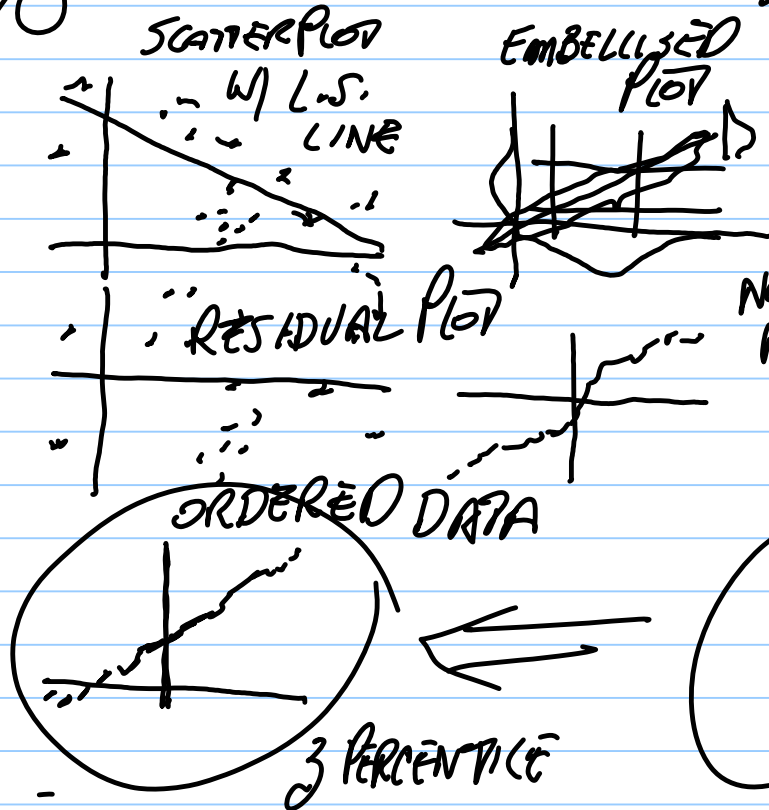 SCATTERPLOT
W/ L.S.
LINE
EMBELLISED
PLOT
RESIDUAL PLOT
ORDERED DATA
z PERCENTILE